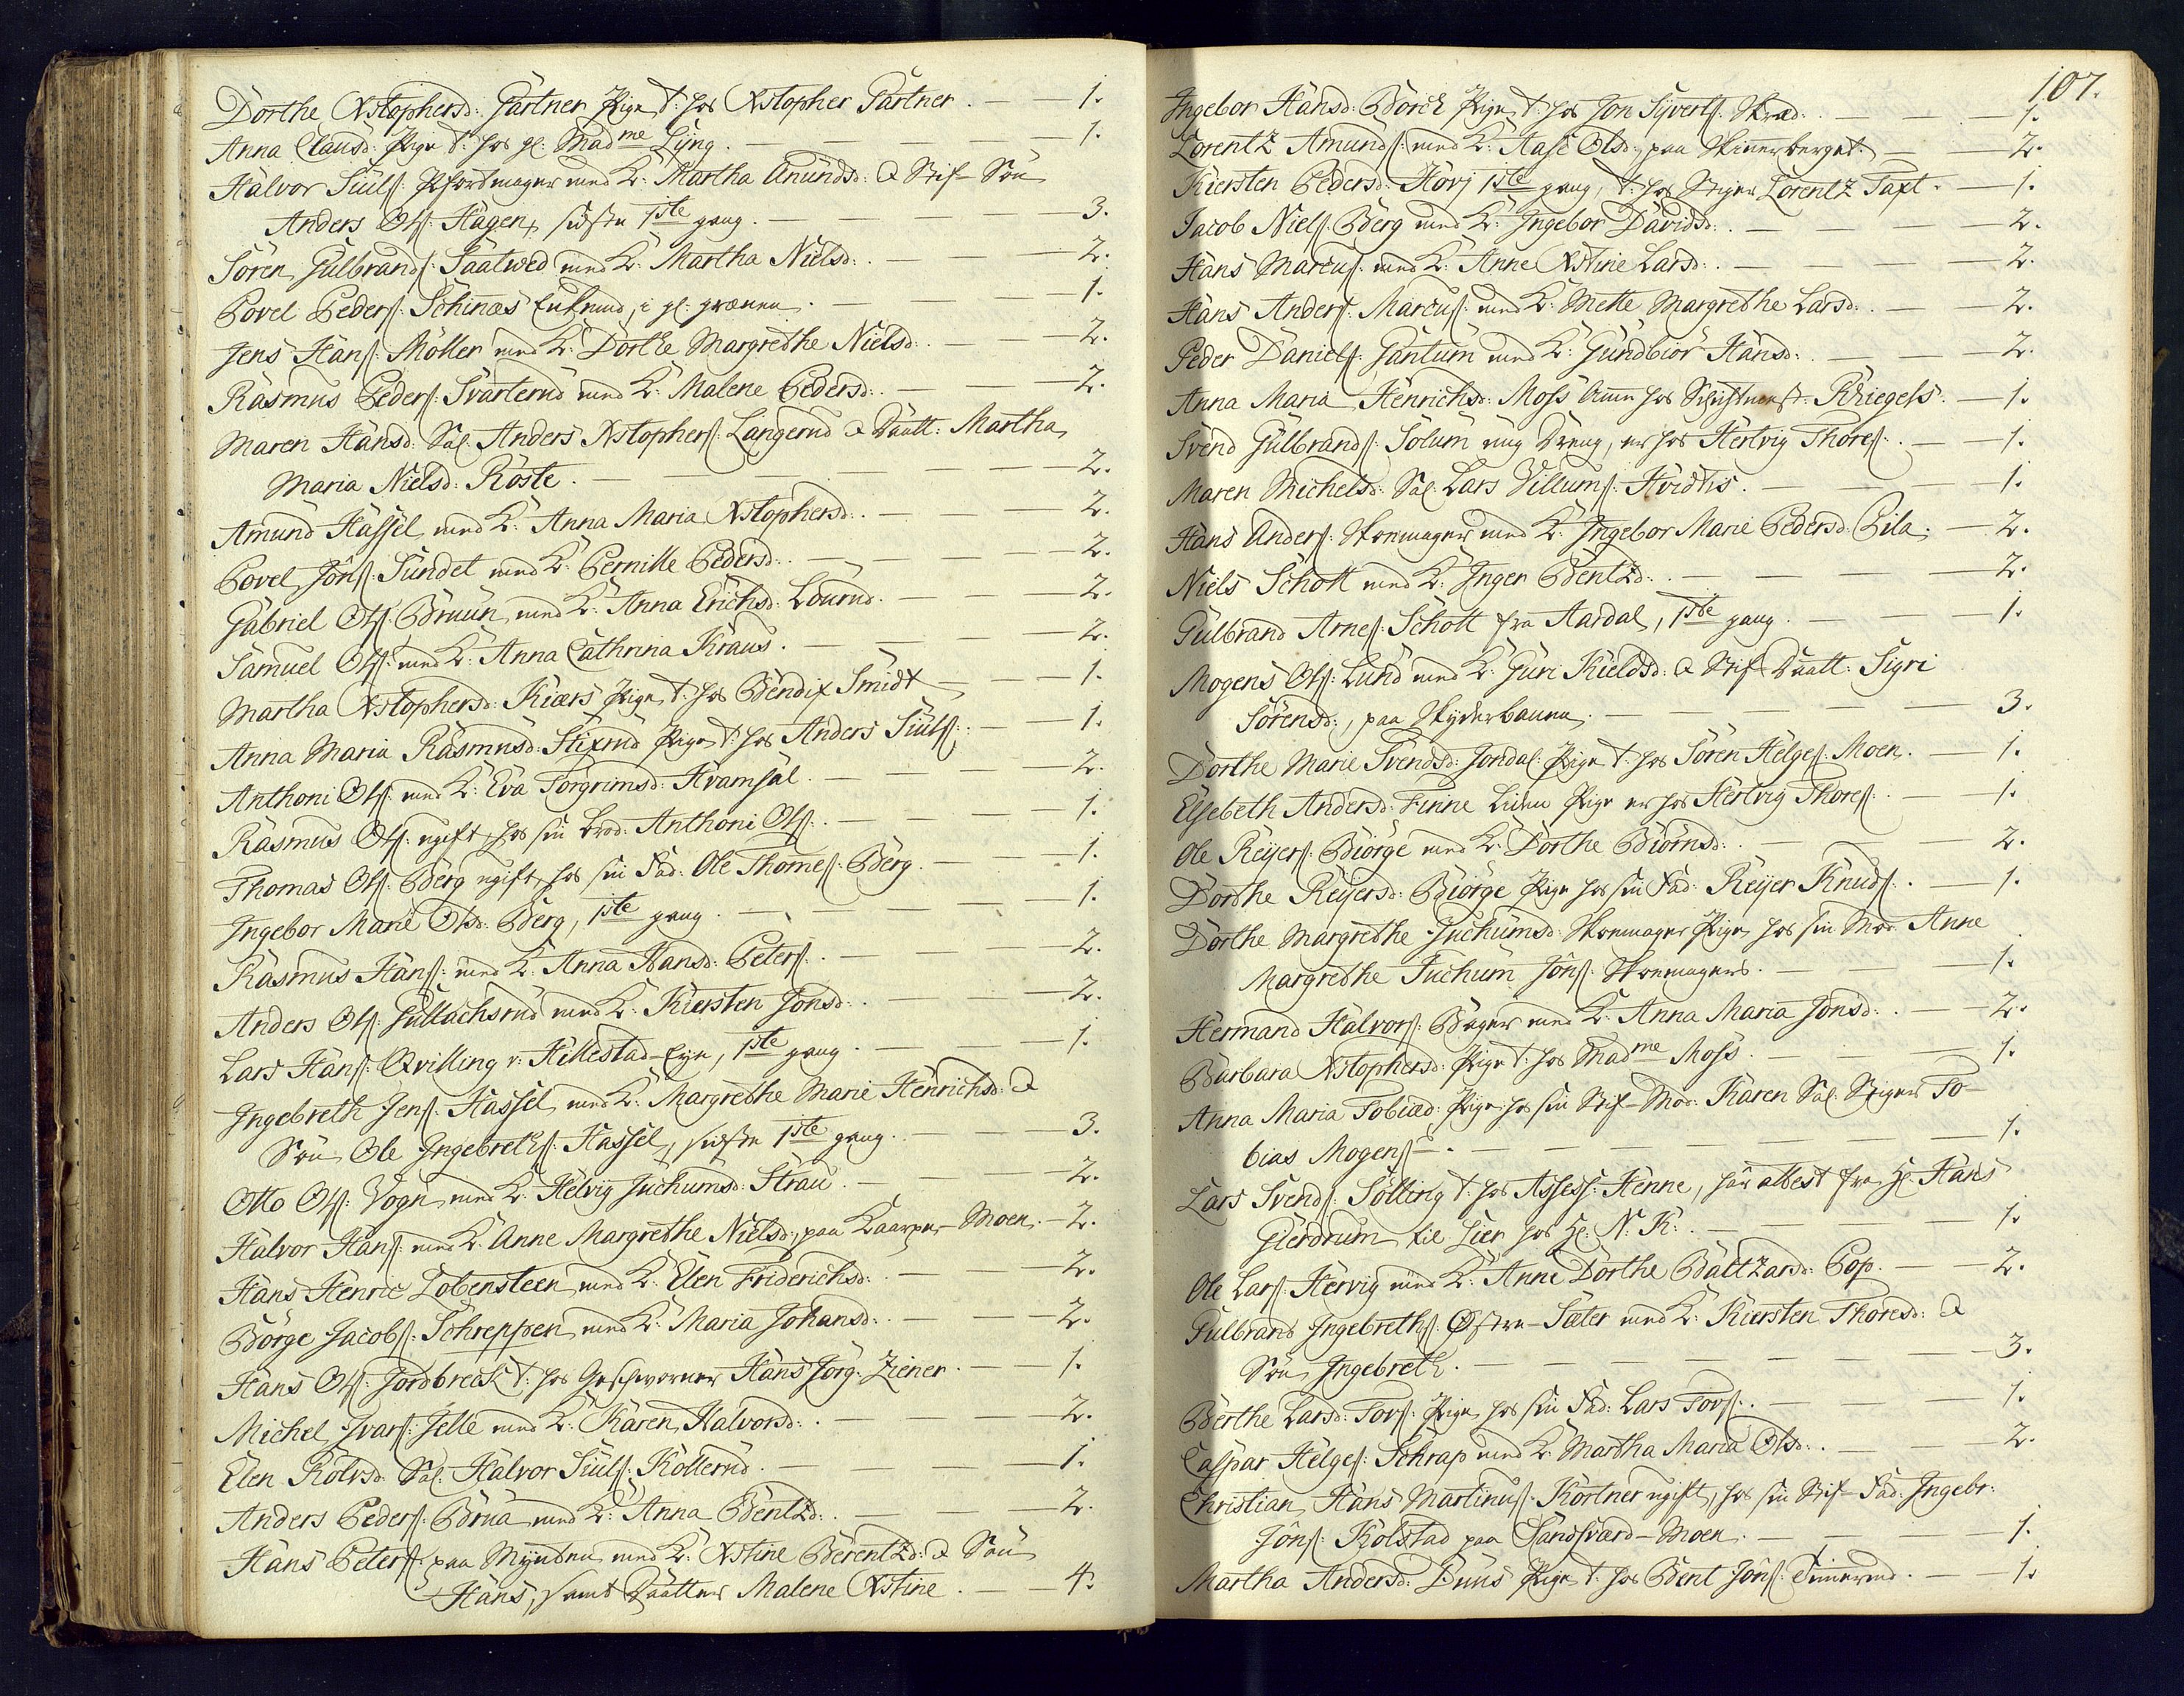 Dorthe Xstophersd: Gartner Pige t: hos Xstopher Gartner. — 1.
Anna Clausd: Pige t: hos gl: Madme Lyng. — 1.
Halvor Siuls: med K: Martha Anundsd: & Stif-Søn
Anders Ols: Hagen, sidste 1ste gang. — 3.
Sören Gulbrands: Saatved med K: Martha Nielsd: — 2.
Povel Peders: Schinæs Enkemd, i gl: grænen. — 1.
Jens Hans: Möller med K: Dorthe Margrethe Nielsd: — 2.
Rasmus Peders: Svarterud med K: Malene Pedersd: — 2.
Maren Hansd: Sal. Anders Xstophers: Langerud & Daatt: Martha
Maria Nielsd: Röste. — 2.
Amund Hassel med K: Anna Maria Xstophersd: — 2.
Povel Jöns: Sundet med K: Pernille Pedersd: — 2.
Gabriel Ols: Bruun med K: Anna Erichsd: Lourud. — 2.
Samuel Ols: med K: Anna Cathrina Kraus. — 2.
Martha Xstophersd: Kiærs Pige t: hos Bendix Smidt — 1.
Anna Maria Rasmusd: Stixrud Pige t: hos Anders Siuls: — 1.
Anthoni Ols: med K: Eva Torgrimsd: Kramsal. — 2.
Rasmus Ols: ugift, hos sin Brod: Anthoni Ols: — 1.
Thomas Ols: Berg ugift, hos sin Fad: Ole Thomes: Berg. — 1.
Ingebor Marie Olsd: Berg, 1ste gang. — 1.
Rasmus Hans: med K: Anna Hansd: Peters: — 2.
Anders Ols: Gullachsrud med K: Kiersten Jonsd: — 2.
Lars Hans: Qvilling v: Hillestad-Eye, 1ste gang. — 1.
Ingebreth Jens: Hassel med K: Margrethe Marie Henrichsd: &
Søn Ole Ingebreths: Hassel, sidste 1ste gang. — 3.
Otto Ols: Vogn med K: Helvig Juchumsd: Strau. — 2.
Halvor Hans: med K: Anne Margrethe Nielsd:, paa Moen. — 2.
Hans Henric Lobensteen med K: Elen Friderichsd: — 2.
Börge Jacobs: Schreppen med K: Maria Johansd: — 2.
Hans Ols: Jordbreck t: hos Geschworner Hans Jörg. Ziener. — 1.
Michel Ivars: Jelle med K: Karen Halvorsd: — 2.
Elen Rolvsd: Sal. Halvor Siuls: Kollerud. — 1.
Anders Peders: Brua med K: Anna Bentzd: — 2.
Hans Peters: paa Mynten med K: Xstine Berentzd: & Søn
Hans, samt Daatter Malene Xstine. — 4.
107.
Ingebor Hansd: Borck Pige t: hos Jon Syverts: Skræd: — 1.
Lorentz Amunds: med K: Aase Olsd:, paa Skinnerberget. — 2.
Kiersten Pedersd: Hovj 1ste gang, t: hos Stiger Lorentz Taxt. — 1.
Jacob Niels: Berg med K: Ingebor Davidsd: — 2.
Hans Marcus: med K: Anne Xstine Larsd: — 2.
Hans Anders: Marcus: med K: Mette Margrethe Larsd: — 2.
Peder Daniels: Gantum med K: Gundbior Hansd: — 2.
Anna Maria Henrichsd: Moss Amme hos Kriegels. — 1.
Svend Gulbrands: Solum ung Dreng, er hos Hertvig Thores: — 1.
Maren Michelsd: Sal. Lars Villums: Hvidtis. — 1.
Hans Anders: Skoemager med K: Ingebor Marie Pedersd: Pila. — 2.
Niels Schott med K: Inger Bentzd: — 2.
Gulbrand Arnes: Schott fra Aardal, 1ste gang. — 1.
Mogens Ols: Lund med K: Guri Kieldsd: & Stif-Daatt: Sigri
Sörensd:, paa Skyderbanen. — 3.
Dorthe Marie Svendsd: Jondal Pige t: hos Sören Helges: Moen. — 1.
Elsebeth Andersd: Finne liden Pige er hos Hertvig Thores: — 1.
Ole Reyers: Biörge med K: Dorthe Biörnsd: — 2.
Dorthe Reyersd: Biörge Pige hos sin Fad: Reyer Knuds: — 1.
Dorthe Margrethe Juchumsd: Skoemager Pige, hos sin Mod: Anne
Margrethe Juchum Jöns: Skoemagers. — 1.
Hermand Halvors: Bager med K: Anna Maria Jonsd: — 2.
Barbara Xstophersd: Pige t: hos Madme Moss. — 1.
Anna Maria Tobiæd: Pige hos sin Stif-Mod: Karen Sal. Stiger To-
bias Mogens: — 1.
Lars Svends: Sölling t: hos Assess: Henne, har attest fra Hr: Hans
Gierdrum til Lier hos Hr: N: K: — 1.
Ole Lars: Hervig med K: Anne Dorthe Baltzarsd: Pop. — 2.
Gulbrand Ingebreths: Østre-Sæter med K: Kiersten Thoresd: &
Søn Ingebreth. — 3.
Berthe Larsd: Tovs: Pige, hos sin Fad: Lars Tovs: — 1.
Caspar Helges: Schrap med K: Martha Maria Olsd: — 2.
Christian Hans Martinus: Körtner ugift, hos sin Stif-Fad: Ingebr:
Jöns: Kolstad paa Sandsværd-Moen. — 1.
Martha Andersd: Duus Pige t: hos Bent Jöns: Tinnerud. — 1.